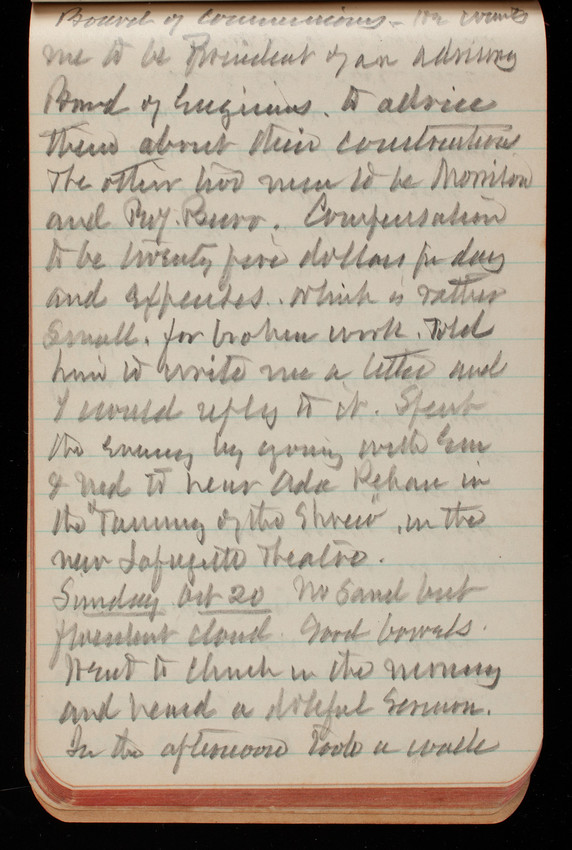 Board of Commissioners - He wants
me to be President of an advisory
Board of Engineers. to advice
them about their constructions
The other two men to be Morrison
and Prof. Burr. Compensation
to be twenty five dollars per day
and expenses. which is rather
small. for broken work. Told
him to write me a letter and
I would reply to it. Spent
the evening by going with Em
& Ned to hear Ada Rehan in
the "Taming of the Shrew", in the
new Lafayette Theatre.
Sunday Oct 20 No Sand but
flocculent cloud. Good bowels.
Went to Church in the morning
and heard a doleful sermon.
In the afternoon Took a walk